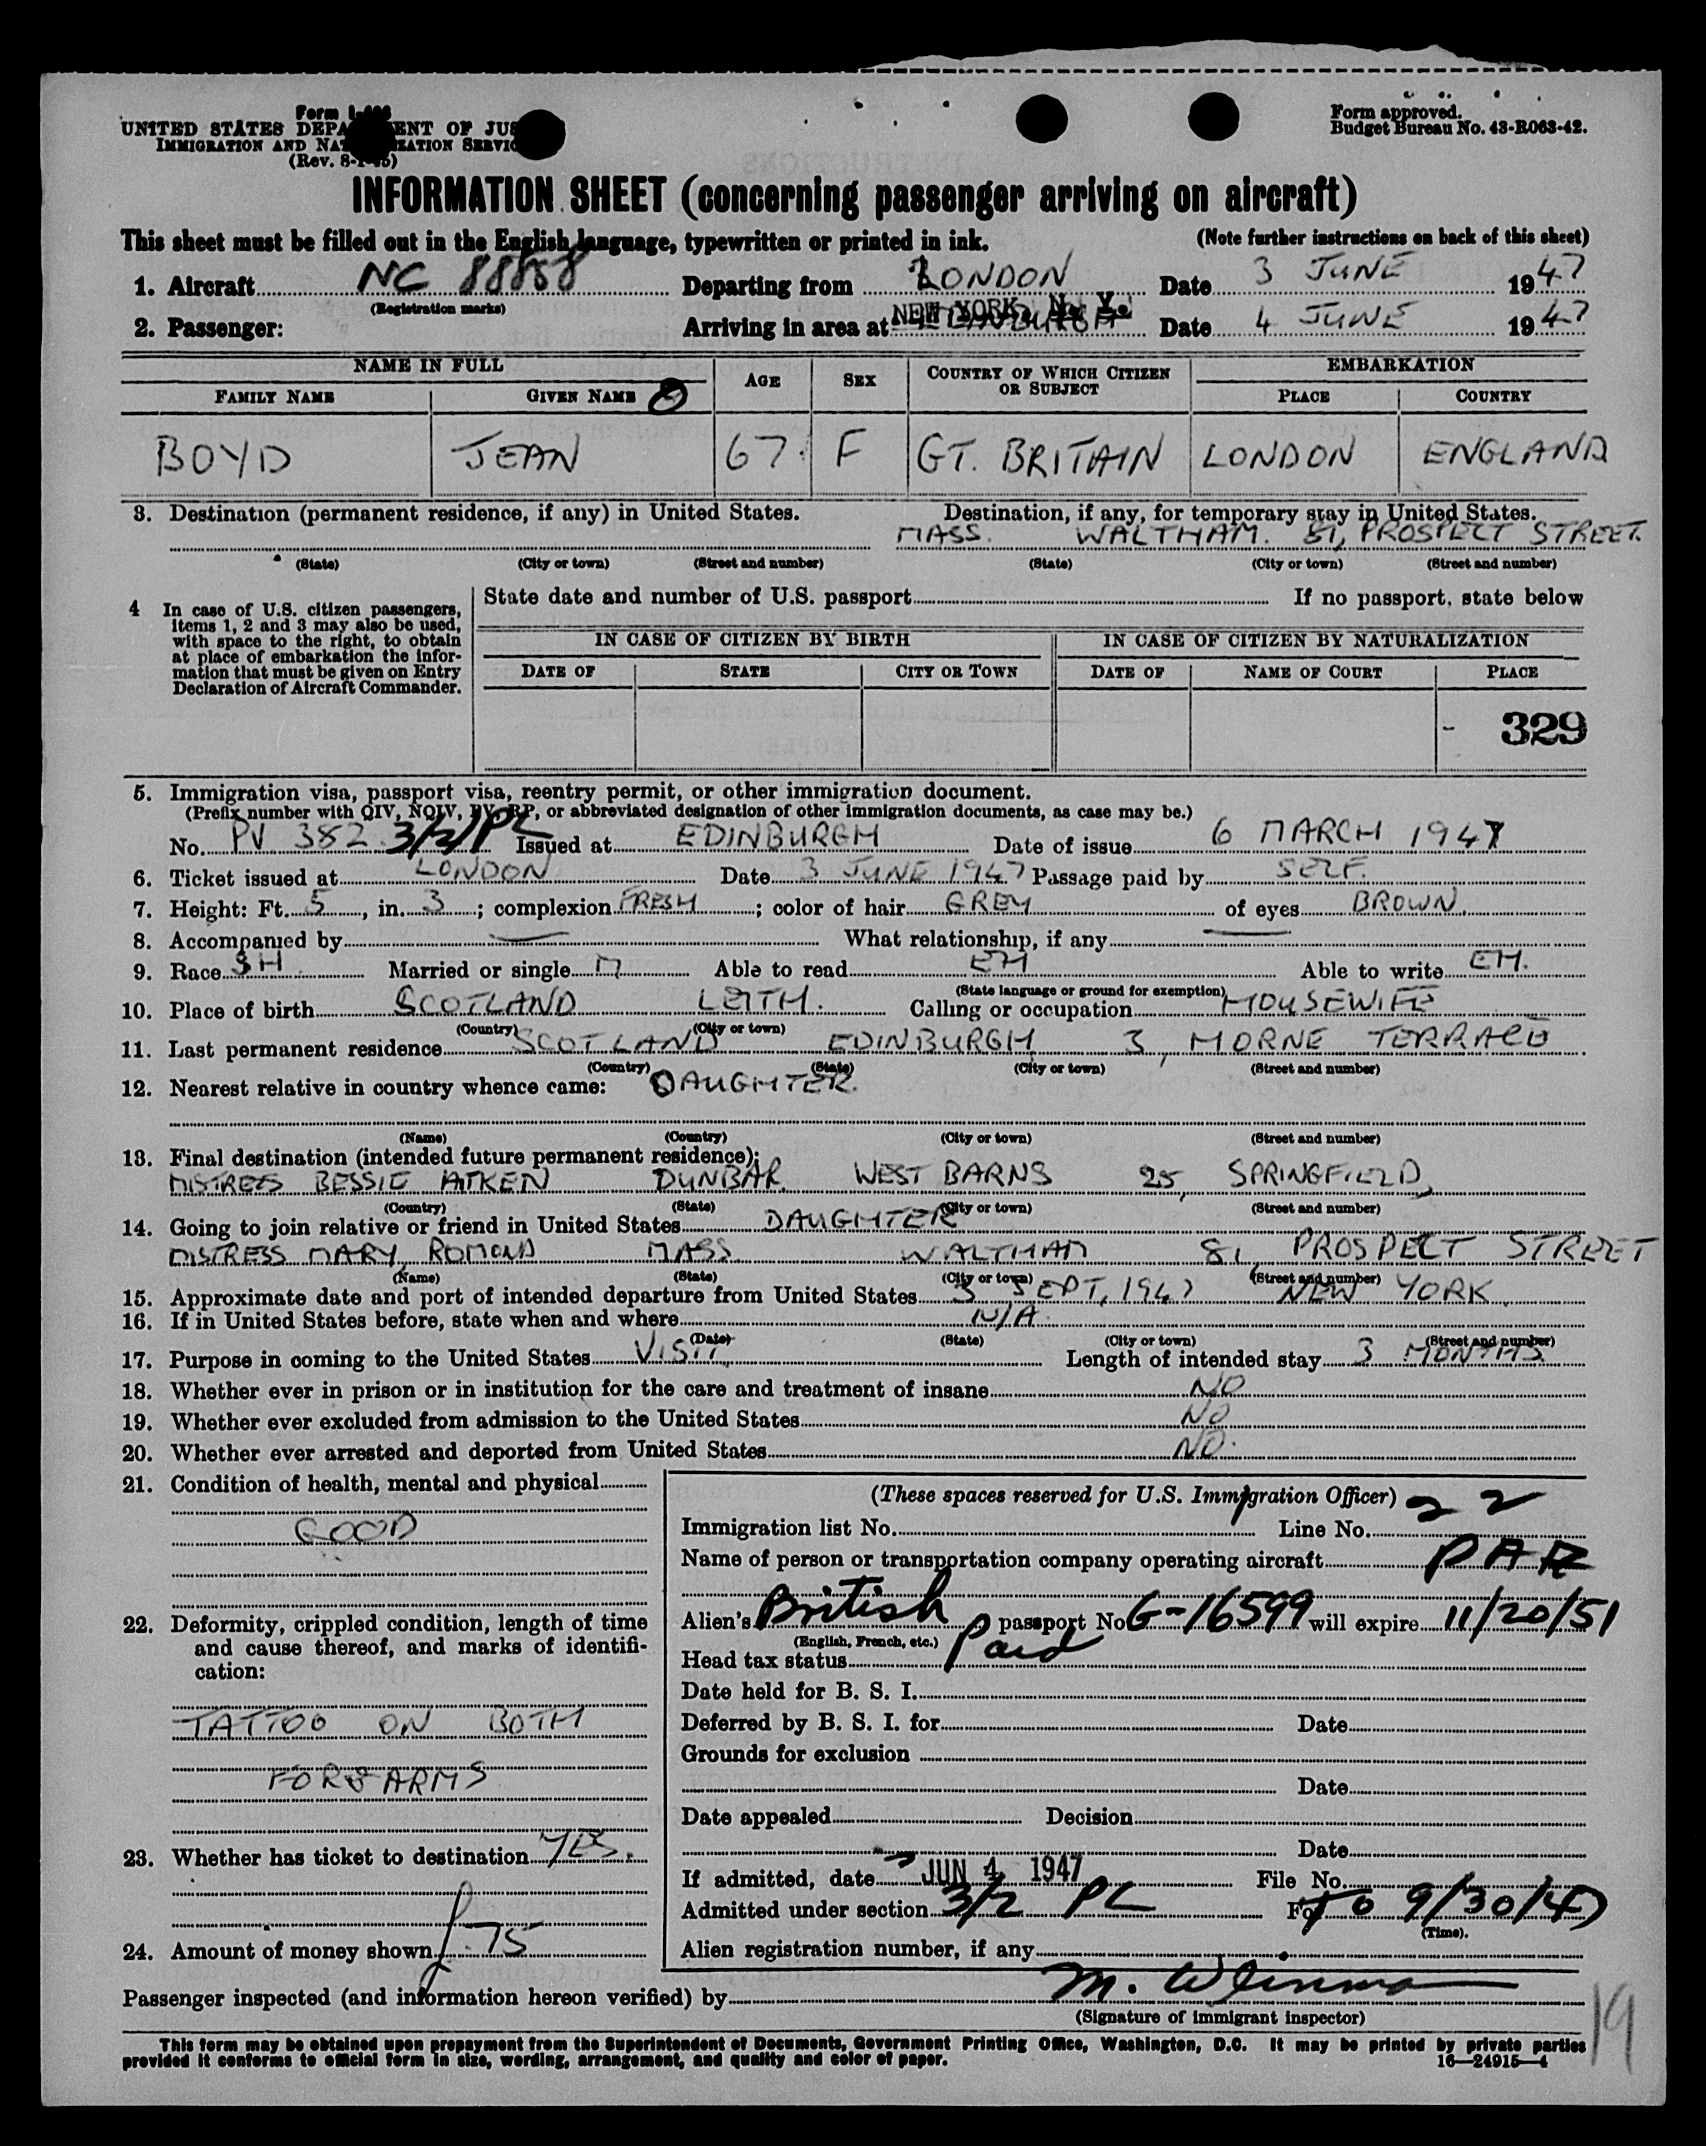 Form I-
UNITED STATES DEPA ENT OF JUS
IMMIGRATION AND NAT IZATION SERVIC
(Rev. 8-1-45)
Form approved.
Budget Bureau No. 43-R063-42.
INFORMATION SHEET (concerning passenger arriving on aircraft)
This sheet must be filled out in the English language, typewritten or printed in ink. (Note further instructions on back of this sheet)
1. Aircraft NC 88858 Departing from LONDON Date 3 JUNE 1947
(Registration marks)
2. Passenger: Arriving in area at NEW YORK, N. Y. EDINBURGH Date 4 JUNE 1947
NAME IN FULL AGE SEX COUNTRY OF WHICH CITIZEN OR SUBJECT EMBARKATION
FAMILY NAME GIVEN NAME PLACE COUNTRY
BOYD JEAN 67 F GT. BRITAIN LONDON ENGLAND
3. Destination (permanent residence, if any) in United States. Destination, if any, for temporary stay in United States.
MASS. WALTHAM. 81, PROSPECT STREET.
(State) (City or town) (Street and number) (State) (City or town) (Street and number)
4 In case of U.S. citizen passengers,
items 1, 2 and 3 may also be used,
with space to the right, to obtain
at place of embarkation the infor-
mation that must be given on Entry
Declaration of Aircraft Commander.
State date and number of U.S. passport If no passport, state below
IN CASE OF CITIZEN BY BIRTH IN CASE OF CITIZEN BY NATURALIZATION
DATE OF STATE CITY OR TOWN DATE OF NAME OF COURT PLACE
- 329
5. Immigration visa, passport visa, reentry permit, or other immigration document.
(Prefix number with QIV, NQIV, PV, RP, or abbreviated designation of other immigration documents, as case may be.)
No. PV 382 3/2/PL Issued at EDINBURGH Date of issue 6 MARCH 1947
6. Ticket issued at LONDON Date 3 JUNE 1947 Passage paid by SELF.
7. Height: Ft. 5, in. 3; complexion FRESH; color of hair GREY of eyes BROWN.
8. Accompanied by — What relationship, if any —
9. Race SH Married or single M Able to read EH Able to write EH.
(State language or ground for exemption)
10. Place of birth SCOTLAND LEITH. Calling or occupation HOUSEWIFE
(Country) (City or town)
11. Last permanent residence SCOTLAND EDINBURGH 3, HORNE TERRACE
(Country) (State) (City or town) (Street and number)
12. Nearest relative in country whence came: DAUGHTER.
(Name) (Country) (City or town) (Street and number)
13. Final destination (intended future permanent residence):
MISTRESS BESSIE AITKEN DUNBAR. WEST BARNS 25, SPRINGFIELD,
(Country) (State) (City or town) (Street and number)
14. Going to join relative or friend in United States DAUGHTER
MISTRESS MARY, ROMOND MASS. WALTHAM 81, PROSPECT STREET
(Name) (State) (City or town) (Street and number)
15. Approximate date and port of intended departure from United States 3 SEPT, 1947 NEW YORK.
16. If in United States before, state when and where N/A.
(Date) (State) (City or town) (Street and number)
17. Purpose in coming to the United States VISIT Length of intended stay 3 MONTHS
18. Whether ever in prison or in institution for the care and treatment of insane NO
19. Whether ever excluded from admission to the United States NO
20. Whether ever arrested and deported from United States NO.
21. Condition of health, mental and physical
GOOD
22. Deformity, crippled condition, length of time
and cause thereof, and marks of identifi-
cation:
TATTOO ON BOTH
FOREARMS
23. Whether has ticket to destination YES.
24. Amount of money shown £75
(These spaces reserved for U.S. Immigration Officer)
Immigration list No. Line No. 22
Name of person or transportation company operating aircraft PAA
Alien's British passport No. G-16599 will expire 11/20/51
(English, French, etc.)
Head tax status Paid
Date held for B. S. I.
Deferred by B. S. I. for Date
Grounds for exclusion
Date
Date appealed Decision
Date
If admitted, date JUN 4 1947 File No.
Admitted under section 3/2 PL For To 9/30/47
(Time).
Alien registration number, if any
Passenger inspected (and information hereon verified) by M.
(Signature of immigrant inspector)
19
This form may be obtained upon prepayment from the Superintendent of Documents, Government Printing Office, Washington, D.C. It may be printed by private parties
provided it conforms to official form in size, wording, arrangement, and quality and color of paper. 16—24915—4